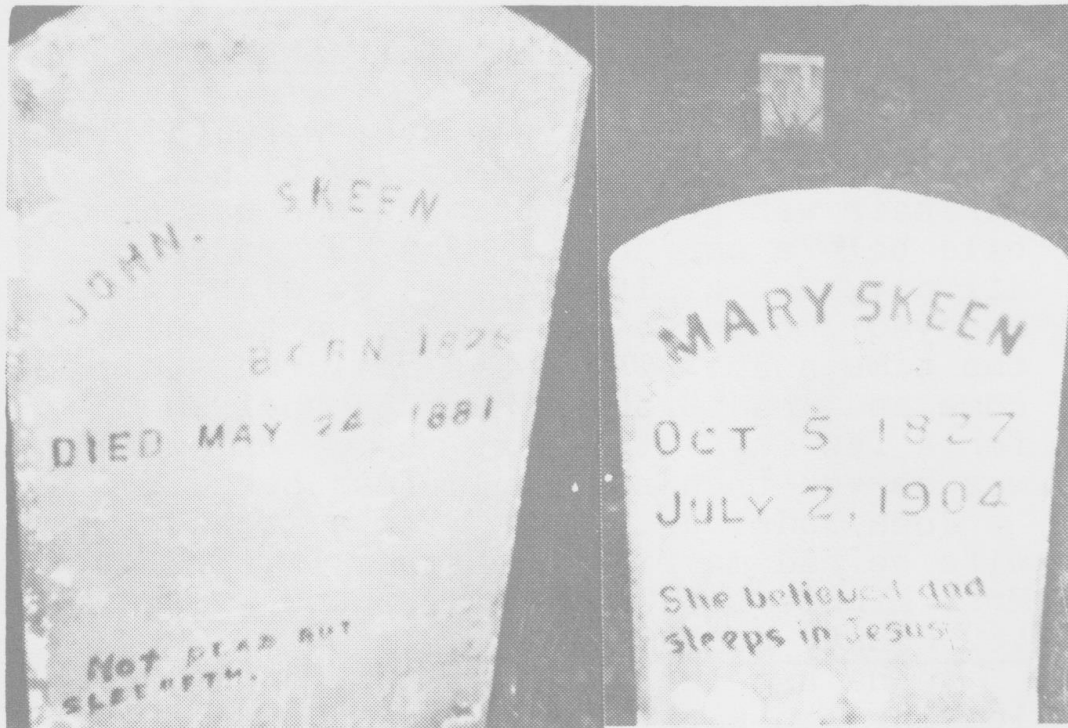 JOHN. SKEEN
BORN 1826
DIED MAY 24 1881
Not DEAD BUT
SLEEPETH.
MARY SKEEN
OCT 5 1827
JULY 2, 1904
She believed and
sleeps in Jesus.